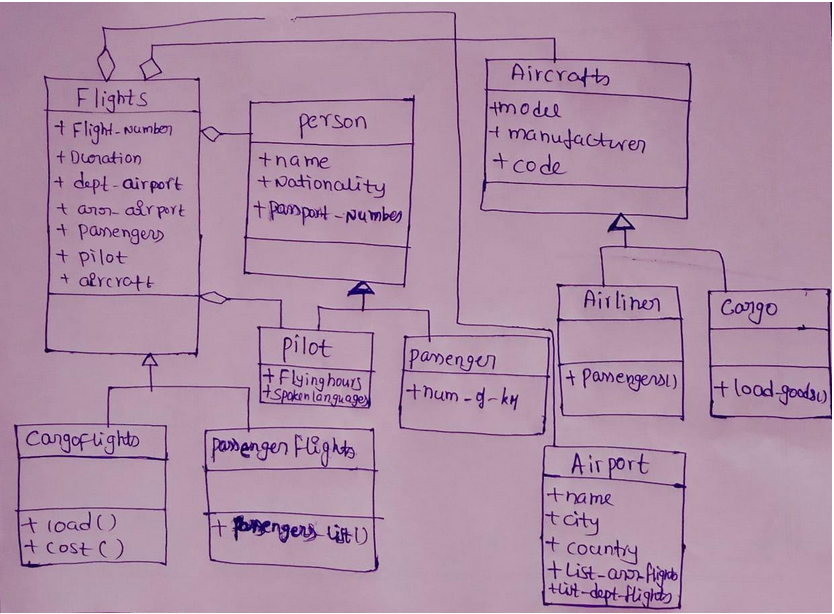 Flights
+ Flight-Number
+ Duration
+ dept-airport
+ arr-airport
+ passengers
+ pilot
+ aircraft
person
+ name
+ Nationality
+ passport-Number
Aircrafts
+model
+ manufacturer
+ code
pilot
+ Flyinghours
+spokenlanguages
passenger
+num-of-km
Airliner
+ Passengers()
Cargo
+ load-goods()
Cargoflights
+ load()
+ cost()
passenger flights
+ passengers-list()
Airport
+name
+city
+ country
+List-arr-flights
+list-dept-flights